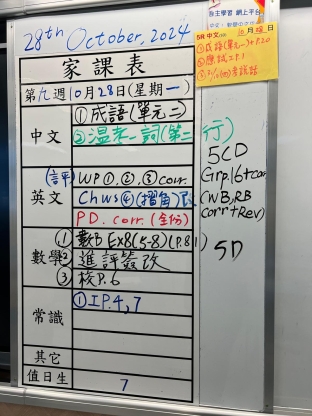 28th October, 2024
家課表
第九週10月28日(星期一)
中文
①成語(單元二)
②溫考一詞(第二行)
英文
(評) WP①,②,③ corr.
Chws④(摺角)
PD. corr.(全份)
數學
① 數B Ex8(5-8)(P.81)
② 進評簽改
③ 核P.6
常識
①IP.4,7
其它
值日生
7
5CD
Grp.16+corr
(WB,RB
corr+Rev)
5D
自主學習 網上平台
5R 中文
①成語(單元一)P.20